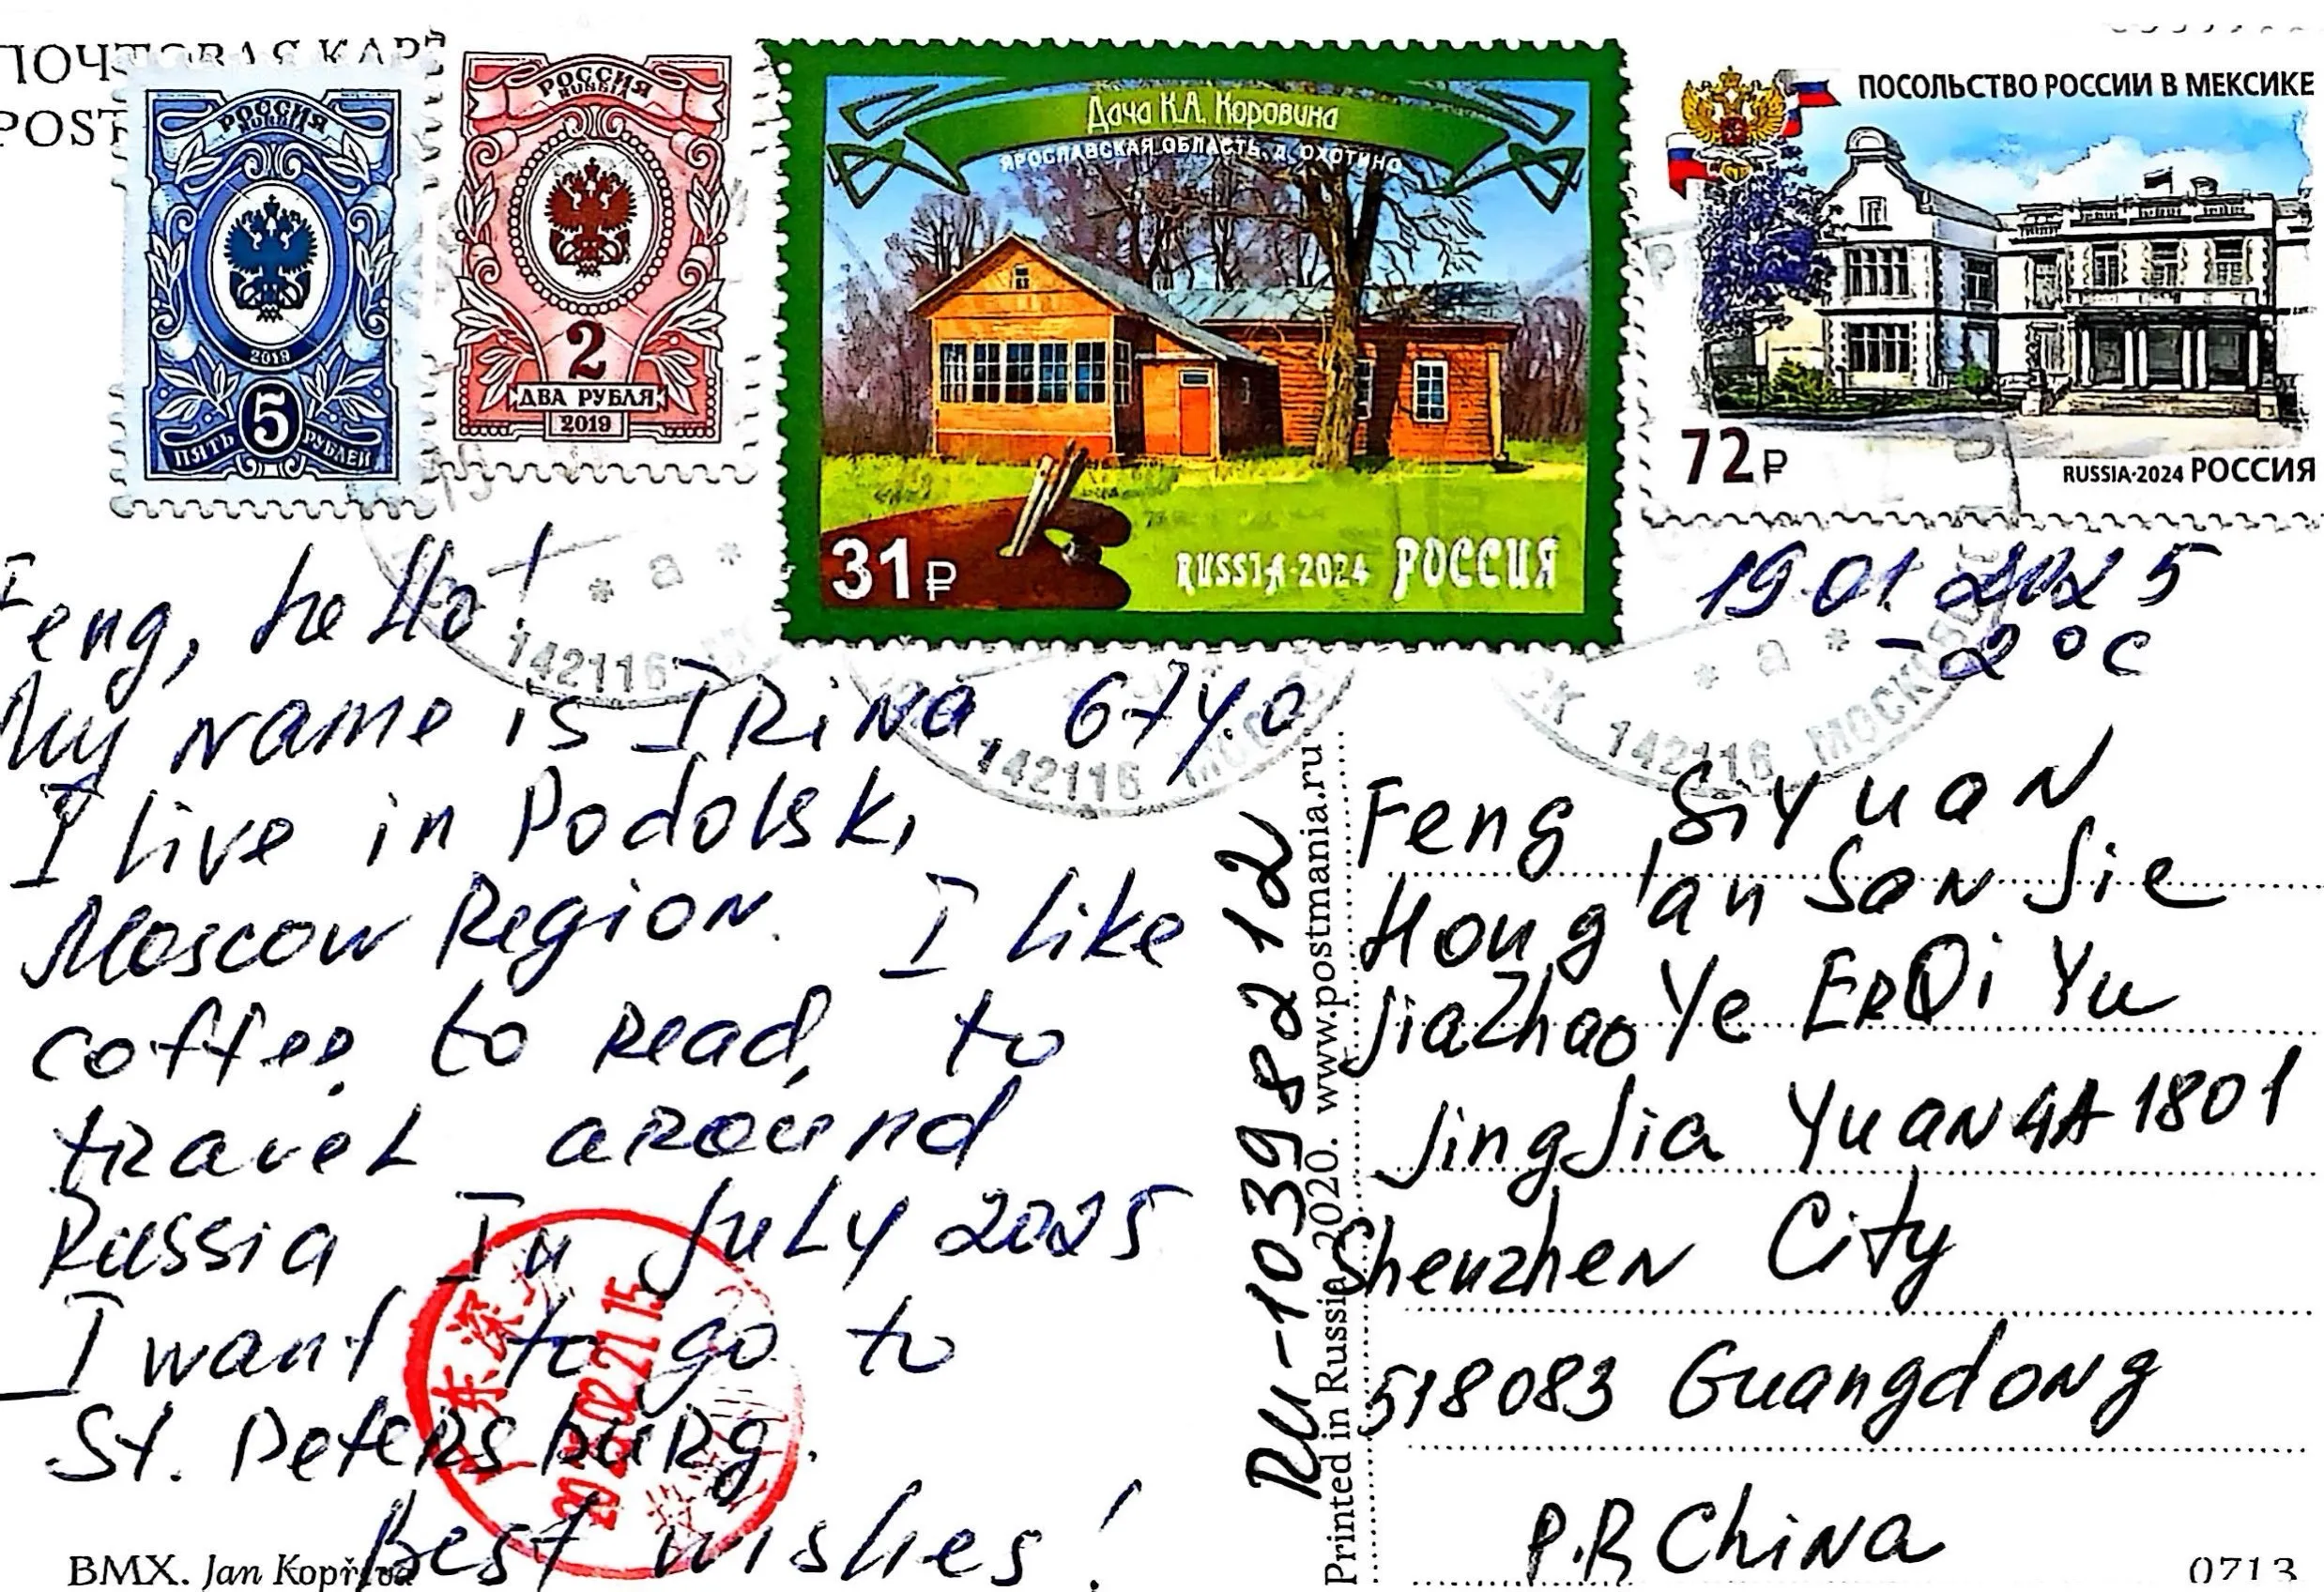 ПОЧТОВАЯ КАР
POST
РОССИЯ
RUSSIA
2019
5
ПЯТЬ РУБЛЕЙ
РОССИЯ
RUSSIA
2
ДВА РУБЛЯ
2019
Дача К.А. Коровина
ЯРОСЛАВСКАЯ ОБЛАСТЬ, д. ОХОТИНО
31₽
RUSSIA·2024 РОССИЯ
ПОСОЛЬСТВО РОССИИ В МЕКСИКЕ
72₽
RUSSIA·2024 РОССИЯ
* а *
142116
142116
* а *
142116 МОСК
19.01.2025
-2°C
Feng, hello!
My name is IRiNa, 67y.o
I live in Podolsk,
Moscow Region. I like
coffee, to Read, to
tRaveL aRound
Russia. In July 2025
I want to go to
St. PeteRsbuRg.
Best wishes!
BMX. Jan Kopřiva
RU-10398212
Printed in Russia 2020. www.postmania.ru
Feng SiYuaN
Hong'an SaN Jie
JiaZhaoYe ERQi Yu
JingJia YuaN 4A 1801
ShenzheN City
518083 GuangdoNg
P.R ChiNa
0713